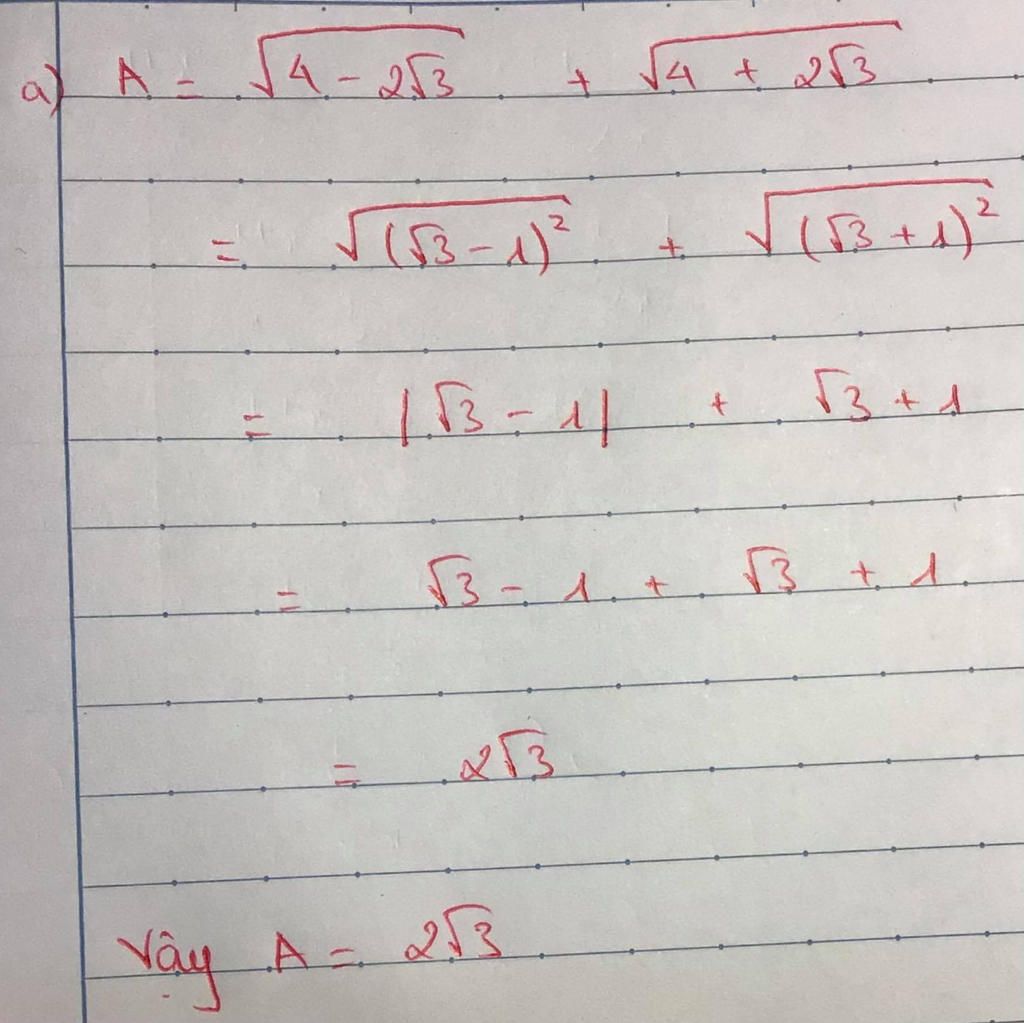 a) A = √(4 - 2√3) + √(4 + 2√3)
= √((√3 - 1)²) + √((√3 + 1)²)
= |√3 - 1| + √3 + 1
= √3 - 1 + √3 + 1
= 2√3
Vậy A = 2√3